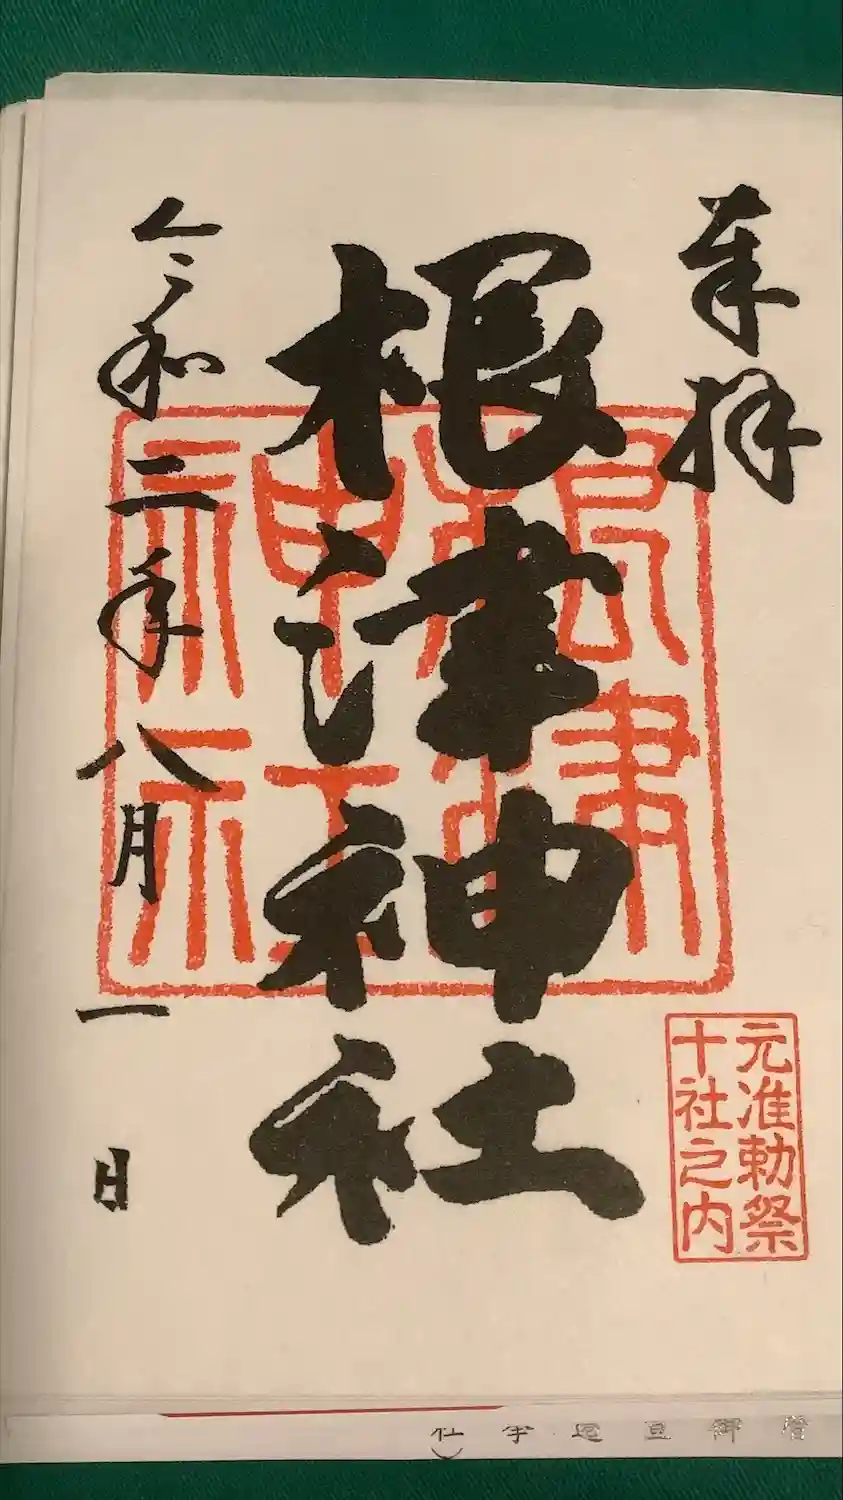 奉拝
元准勅祭
十社之内
根津神社
根津
神社
令和二年八月一日